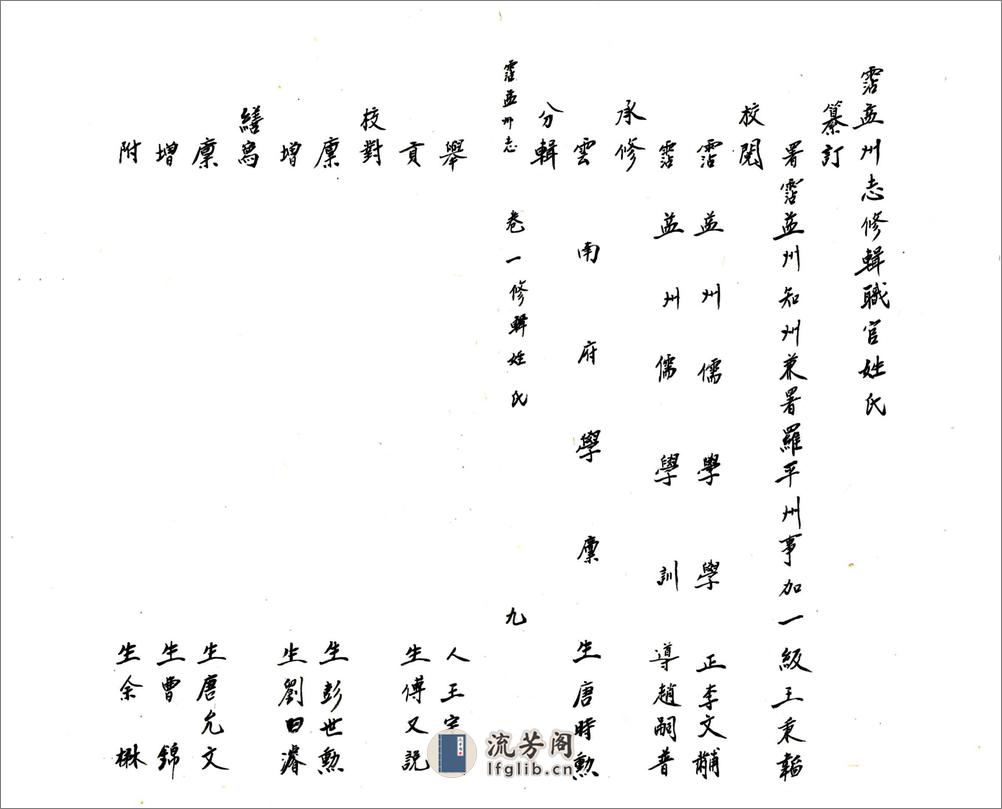 霑益州志修輯職官姓氏
纂訂
署霑益州知州兼署羅平州事加一級王秉韜
校閱
霑益州儒學學正李文黼
霑益州儒學訓導趙嗣普
承修
雲南府學廩生唐時勲
分輯
霑益州志 卷一修輯姓氏 九
舉人王
貢生傅又說
校對
廩生彭世勲
增生劉曰濬
繕寫
廩生唐允文
增生曹錦
附生余楙
流芳阁
lfglib.cn